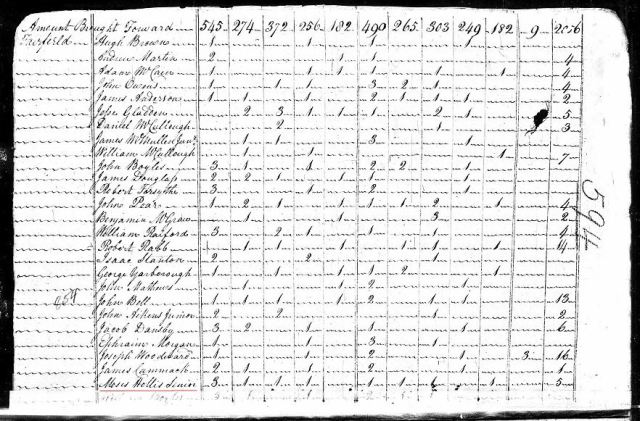 Amount Brought Forward 545 274 372 256 182 490 265 303 249 182 9 2056
Fairfield Hugh Brown 1 1 1 1
Andrew Martin 2 1 1 4
Adam McCain 1 1 1 1 1 4
John Owens 1 1 1 3 2 1 4
James Anderson 1 1 1 2 1 1 1 2
John Gladden 2 3 1 1 1 2 1 5
Daniel McCullough 2 1 3
James McMullen Junr 1 1 3 1
William McCullough 1 1 1 7
John Boyles 3 1 1 2 2 1
James Douglass 2 2 1 1 1 1
Robert Forsythe 3 1 2 1
John Pear 1 2 1 1 1 1 2 1 4
Benjamin McGraw 1 1 1 3 2
William Raiford 3 2 1 1 1 4
Robert Rabb 1 1 1 1 1 1 1 1 14
Isaac Stanton 2 2 1
George Yarborough 1 1 1 1 2 1
John Mathews 1 1 2 1
John Bell 1 1 1 1 2 1 1 13
John Aikens Junior 2 2 1 2
Jacob Dansby 3 2 1 1 1 1 6
Ephraim Morgan 1 1 3 1
Joseph Woodward 1 1 1 2 1 3 16
James Cammack 2 1 2 1 1
Moses Hollis Senior 3 1 1 1 1 1 6 1 5
594